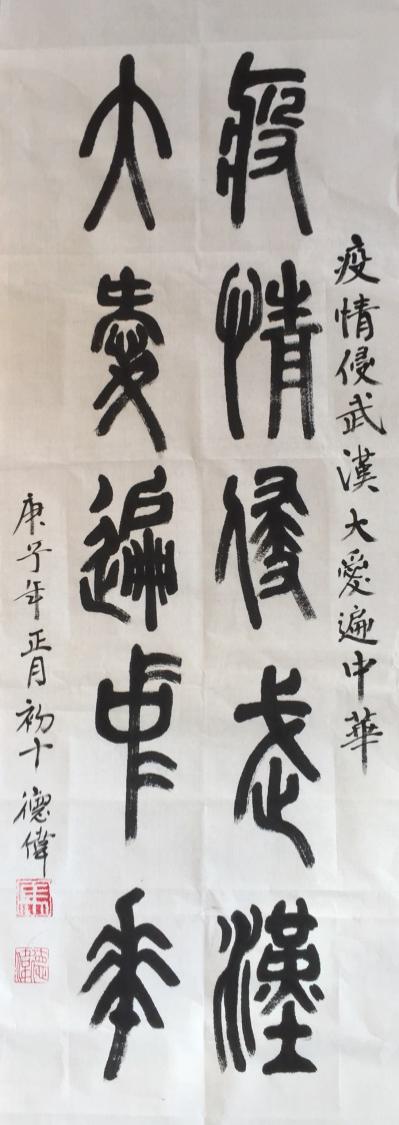 疫情侵武漢大愛遍中華
疫情侵武漢
大愛遍中華
庚子年正月初十德偉
德偉